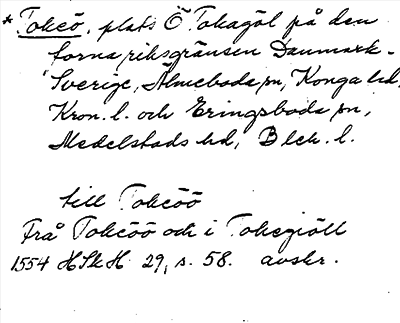 * Tokeö, plats Ö Tokagöl på den
forna riksgränsen Danmark-
Sverige, Älmeboda sn, Konga hd,
Kron. l. och Eringsboda sn,
Medelstads hd, Blek. l.
till Tokeöö
Frå Tokeöö och i Tokegiöll
1554 HSkH 29, s. 58. avskr.